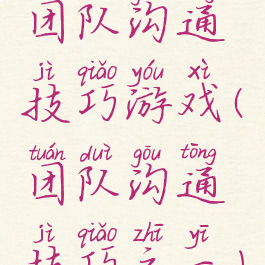 团队沟通
jì qiǎo yóu xì
技巧游戏(
tuán duì gōu tōng
团队沟通
jì qiǎo zhī yī
技巧之一)